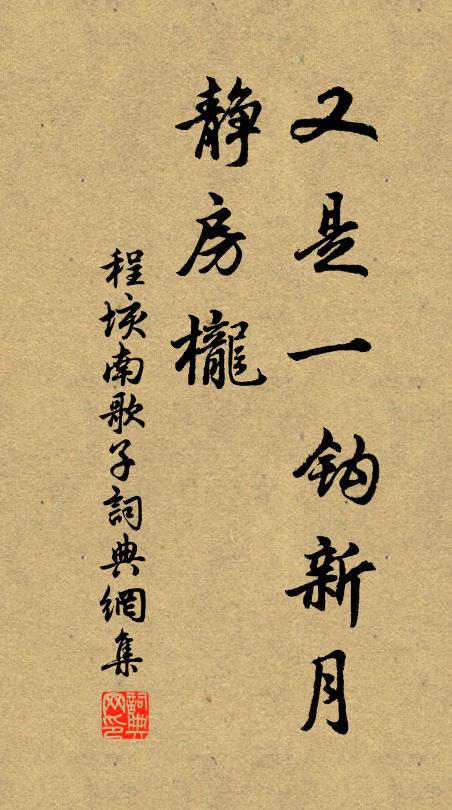 又是一鈎新月
静房櫳
程垓南歌子詞典網集
詞典网印